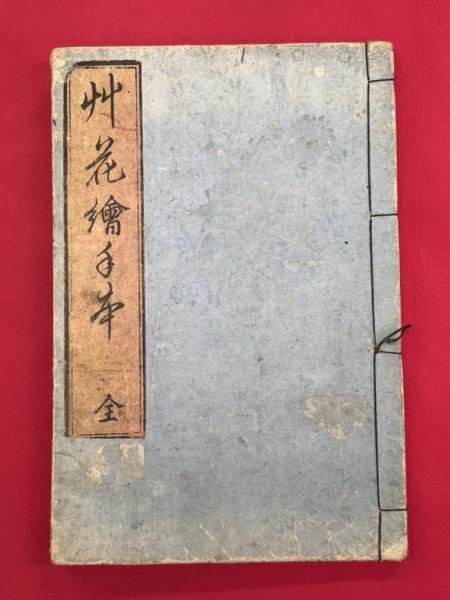 艸花繪手本 全